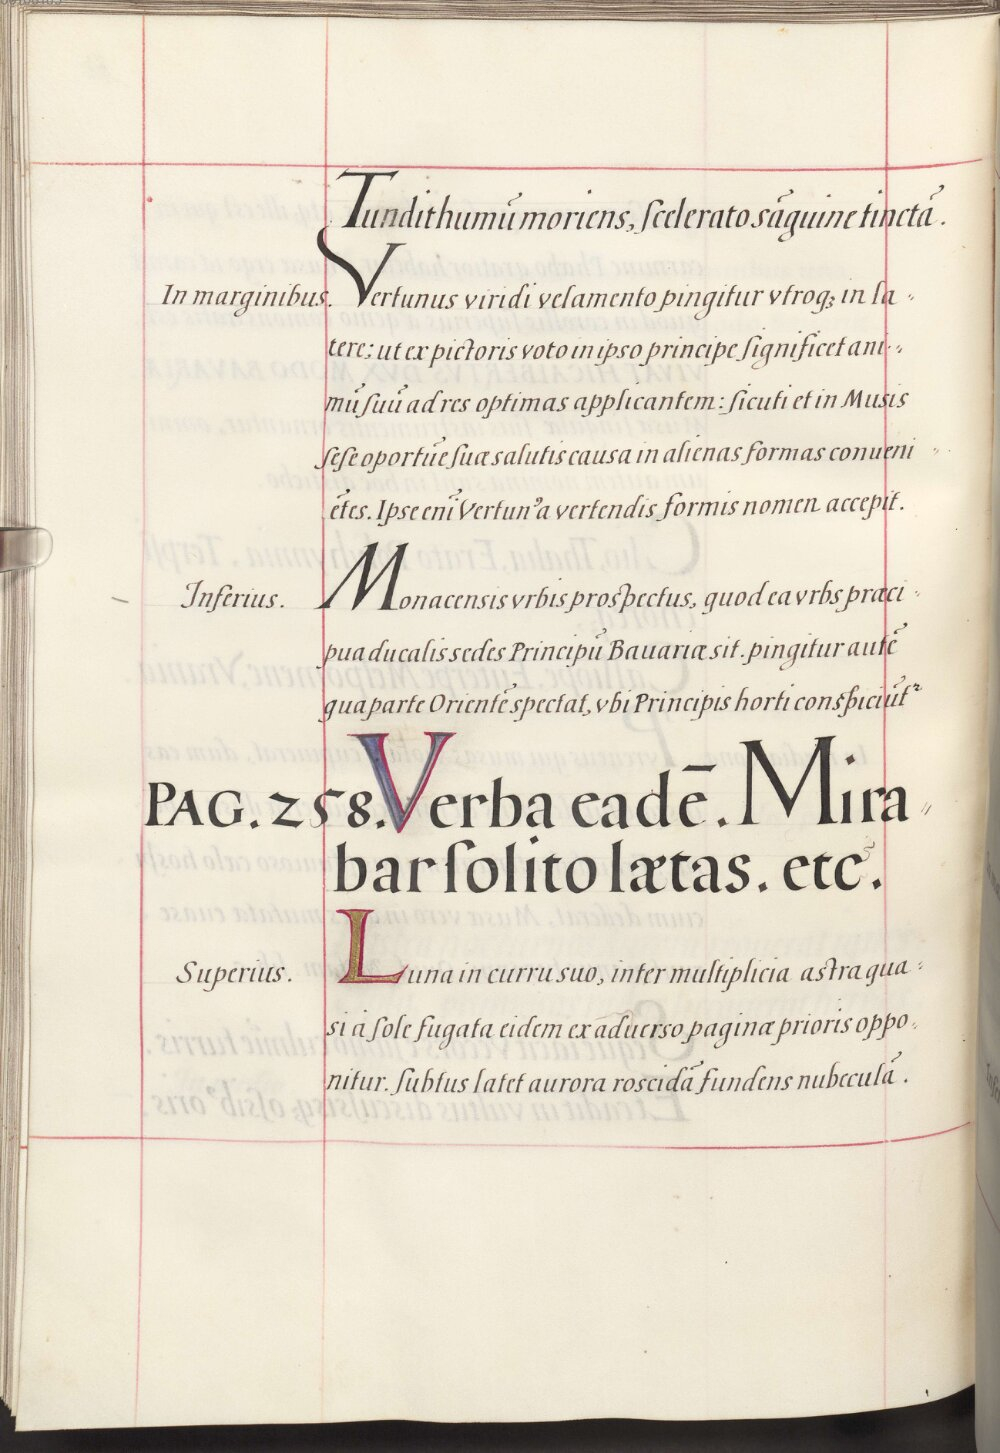 Tundit humū moriens, ſcelerato sāguine tinctā.
In marginibus. Vertunus viridi velamento pingitur vtroq; in la-
tere; ut ex pictoris voto in ipso principe ſignificet ani-
mū ſuū ad res optimas applicantem: ſicuti et in Musis
ſeſe oportūe ſuæ salutis causa in alienas formas conueni
ētes. Ipse enī Vertunꝰ a vertendis formis nomen accepit.
Inferius. Monacensis vrbis prospectus, quod ea vrbs præci-
pua ducalis sedes Principū Bauariæ sit. pingitur autē
qua parte Orientē spectat, vbi Principis horti conspiciūtᷣ
PAG. 258. Verba eadē. Mira-
bar ſolito lætas. etc.
Superius. Luna in curru suo, inter multiplicia astra qua-
si à ſole fugata eidem ex aduerso paginæ prioris oppo-
nitur. ſubtus latet aurora roscidā fundens nubeculā.